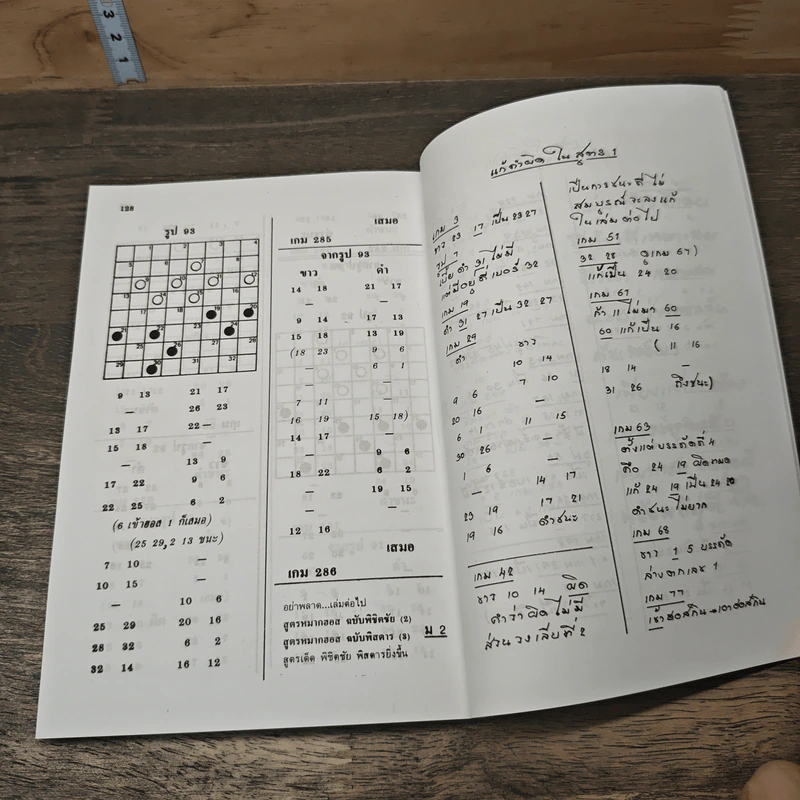 3 2 1
128
รูป 93
9 13 21 17
– 26 23
13 17 22 –
15 18 –
– 13 9
17 22 9 6
22 25 6 2
(6 เข้าฮอส 1 ก็เสมอ)
(25 29, 2 13 ชนะ)
7 10 –
10 15 –
– 10 6
25 29 20 16
28 32 6 2
32 14 16 12
เสมอ
เกม 285
จากรูป 93
ขาว ดำ
14 18 21 17
– –
9 14 17 13
15 18 13 19
(18 23 9 6
– 6 1
– –
7 11 –
16 19 15 18)
14 17 –
– 9 6
18 22 6 2
– 19 15
– –
12 16
เสมอ
เกม 286
อย่าพลาด...เล่มต่อไป
สูตรหมากฮอส ฉบับพิชิตชัย (2)
สูตรหมากฮอส ฉบับพิสดาร (3)
สูตรเด็ด พิชิตชัย พิสดารยิ่งขึ้น
ม 2
แก้คำผิด ใน สูตร 1
เกม 3
ขาว 23 17 เป็น 23 27
รูป 7
เบี้ย ดำ 31 ไม่มี
แต่มีอยู่ที่ เบอร์ 32
เกม 19
ดำ 31 27 เป็น 32 27
เกม 29
ดำ ขาว
10 14
9 6 7 10
20 16 –
6 1 11 15
30 26 –
1 6 –
– 14 17
23 19 17 21
19 16 ดำชนะ
เกม 42
ขาว 10 14 ผิด
คำว่าผิด ไม่มี
ส่วน วงเล็บที่ 2
เป็นการชนะที่ไม่
สมบูรณ์ จะลงแก้
ในเล่มต่อไป
เกม 51
32 28 (ดูเกม 67)
แก้เป็น 24 20
เกม 61
ถ้า 11 ไม่มา 60
60 แก้เป็น 16
( 11 16
18 14 –
31 26 ถึงชนะ)
เกม 63
ตั้งแต่บรรทัดที่ 4
คือ 24 19 ผิดหมด
แก้ 24 19 เป็น 24 20
ดำชนะไม่ยาก
เกม 68
ขาว 1 5 บรรทัด
ล่างตกเลข 1
เกม 77